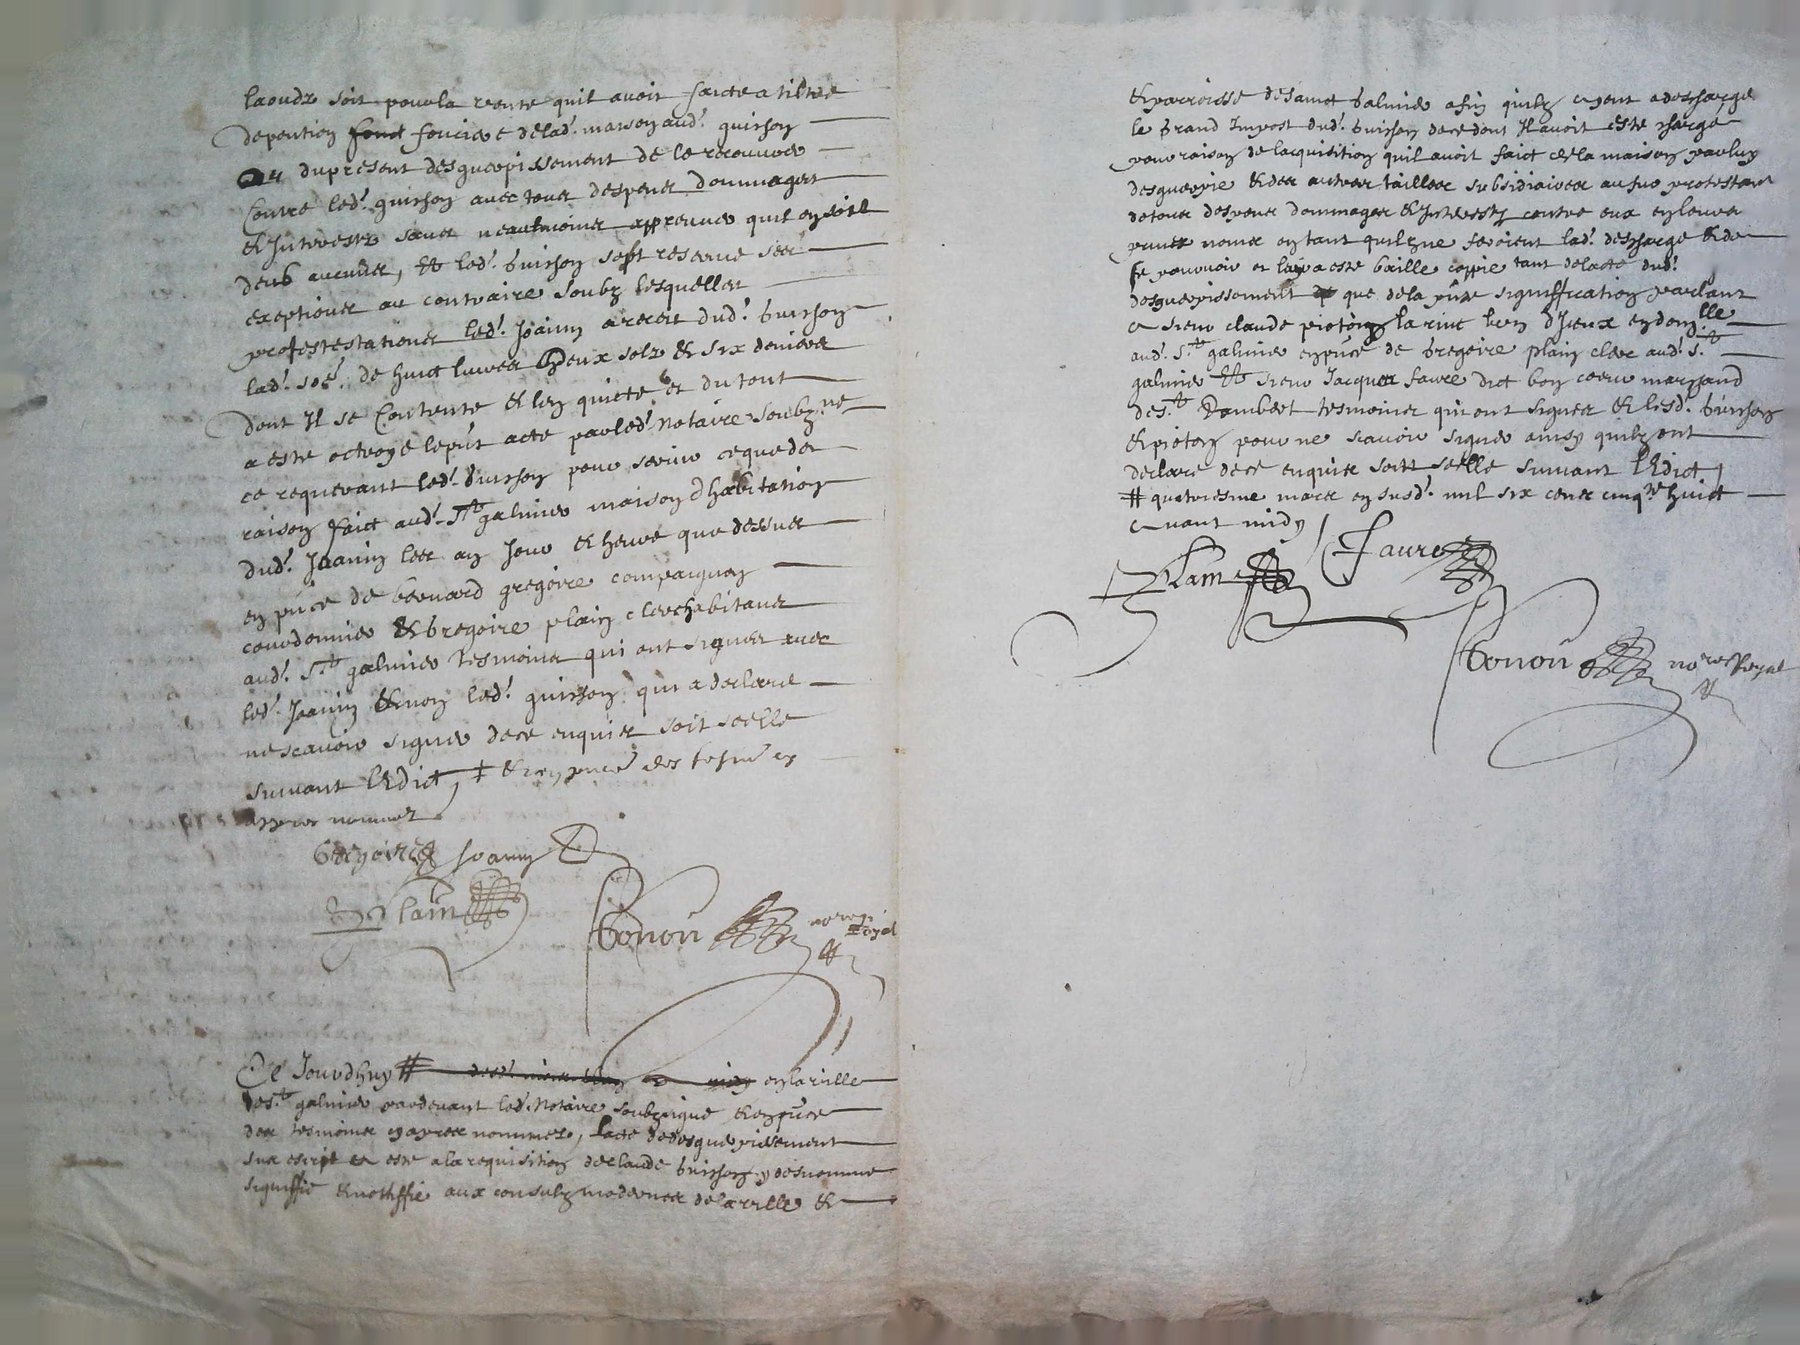 laoudz soit pour la vente quil avoit faicte a tiltre
de pention fonciere de lad. maison aud. buisson
du present desguerpissement de le recouvrer
contre led. buisson avec tous despens dommages
et Interestz sans neautmoins appreuver quil en soit
deub aucunes, Et led. buisson sest reserve ses
exeptions au contraire soubz lesquelles
protestestations led. Joanin a receu dud. buisson
lad. so.e de huict livres deux solz et six deniers
dont Il se contente et len quicte et du tout
a este octroye le pnt acte par led. notaire soubz.ne
ce requerant led. buisson pour servir ce que de
raison faict aud. St galmier maison dhabitation
dud. Joanin les an Jour et heure que dessus
en pnce de bernard gregoire compaignon
courdonnier et gregoire plain clerc habitans
aud. St galmier tesmoins qui ont signes avec
led. Joanin et non led. buisson qui a declare
ne scavoir signer de ce enquis soit scelle
suivant lEdict, et en pnce des tesm
appres nommez
Gregoire Joanin
Plain
Bonou no.re Royal
Ce Jourdhuy # en la ville
de St galmier pardevant led. Notaire soubzsigne et en pnce
des tesmoins appres nommez, lacte de desguerpissement
sus escript a este a la requisition de claude buisson y desnomme
signiffie et nottiffie aux consulz modernes de la ville et
et parroisse de sainct galmier afin quilz ayent a descharge
le grand Impost dud. buisson de ce dont Il avoit este charge
pour raison de lacquisition quil avoit faict de la maison par luy
desguerpie et des autres tailles subsidiaires au sur protestant
de tous despens dommages et Interestz contre eux en leurs
prives noms en tant quilz ne feroient lad. descharge et de
se pourvoir et leur a este baille coppie tant de lacte dud.
desguerpissement que de la pnte signiffication parlant
a sieur claude pioton en dom.lle
aud. St galmier en pnce de gregoire plain clerc aud. St
galmier Et sieur Jacques faure dict bon coeur marchand
de St Rambert tesmoins qui ont signes et lesd. buisson
et pioton pour ne scavoir signer ainsy quilz ont
declare de ce enquis soit scelle suivant lEdict
# quatriesme mars en susd. mil six cens cinq.te huict
avant midy
Plain Faure
Bonou no.re Royal